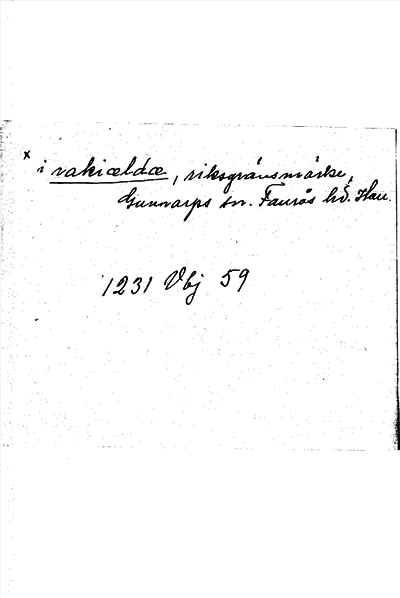 x i vakiældæ, riksgränsmärke,
Gunnarps sn. Faurås hd. Hall.
1231 Vbj 59